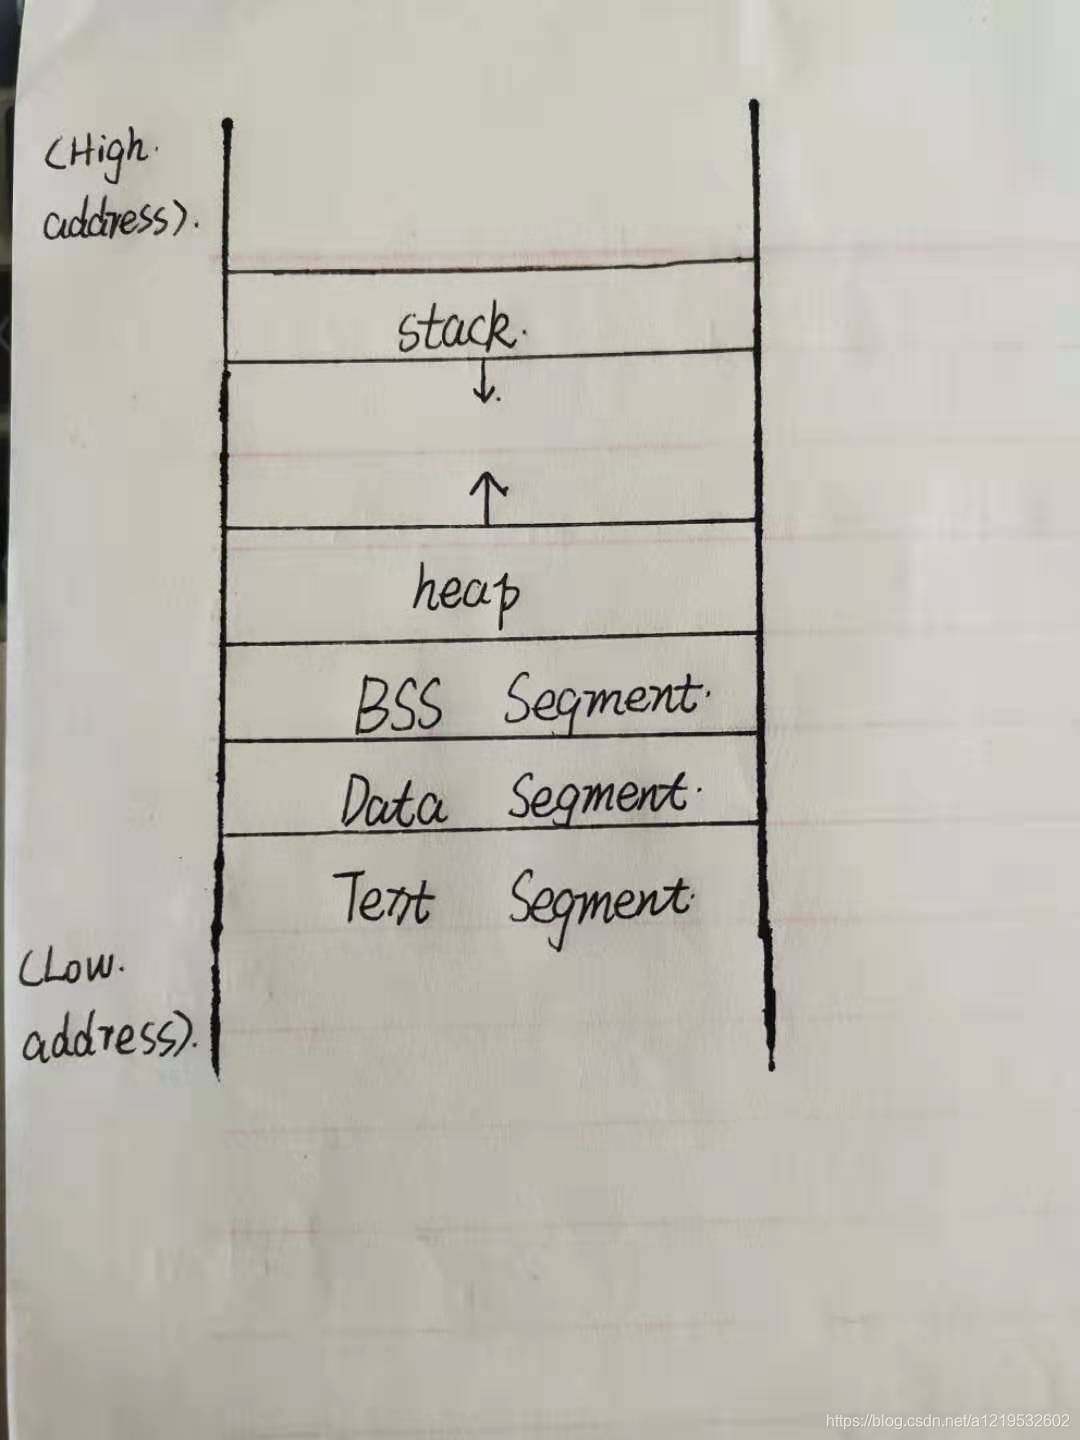 (High.
address).
stack.
heap
BSS Segment.
Data Segment.
Text Segment.
(Low.
address).
https://blog.csdn.net/a1219532602